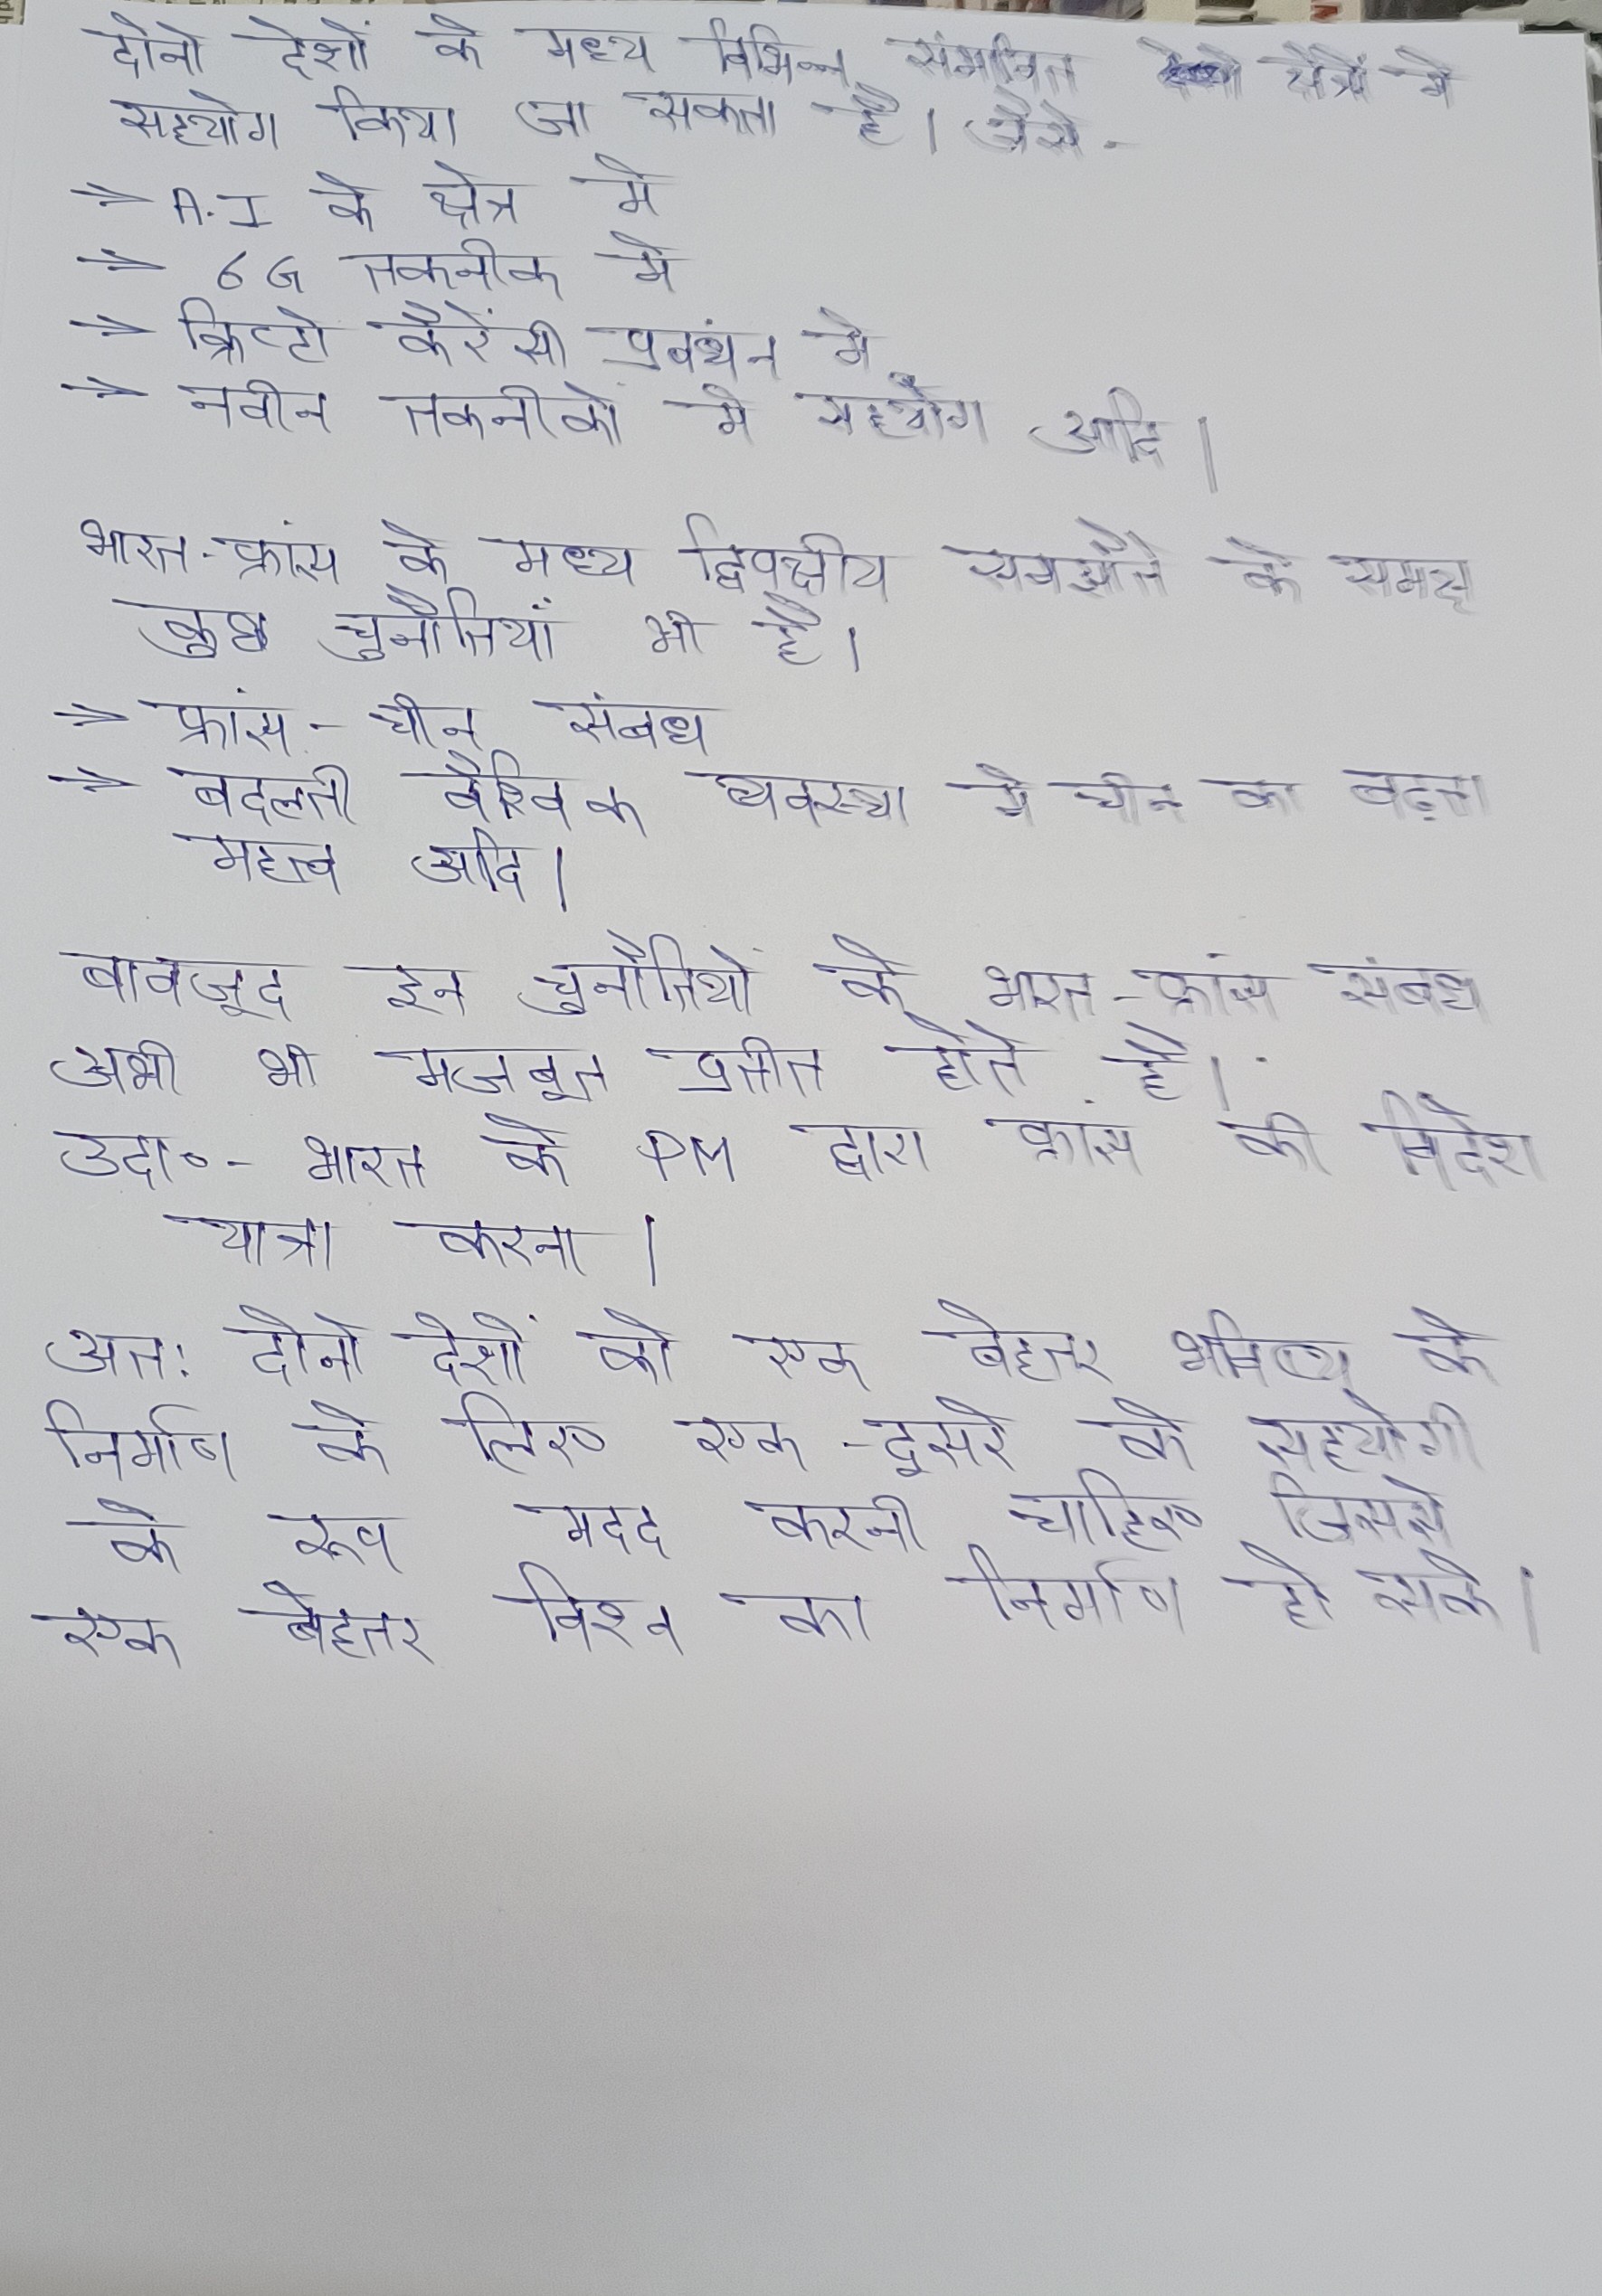 दोनो देशों के मध्य विभिन्न संभावित क्षेत्रों मे
सहयोग किया जा सकता है। जैसे-
⇒ A.I के क्षेत्र मे
⇒ 6G तकनीक मे
⇒ क्रिप्टो कैरेंसी प्रबधंन मे
⇒ नवीन तकनीको मे सहयोग आदि।
भारत-फ्रांस के मध्य द्विपक्षीय समझौते के समक्ष
कुछ चुनौतियाँ भी है।
⇒ फ्रांस - चीन संबध
⇒ बदलती वैश्विक व्यवस्था मे चीन का बढ़ता
महत्व आदि।
बावजूद इन चुनौतियो के भारत-फ्रांस संबध
अभी भी मजबूत प्रतीत होते है।
उदा०- भारत के PM द्वारा फ्रांस की विदेश
यात्रा करना।
अत: दोनो देशों को एक बेहतर भविष्य के
निर्माण के लिए एक-दूसरे के सहयोगी
के रूप मदद करनी चाहिए जिससे
एक बेहतर विश्व का निर्माण हो सके।